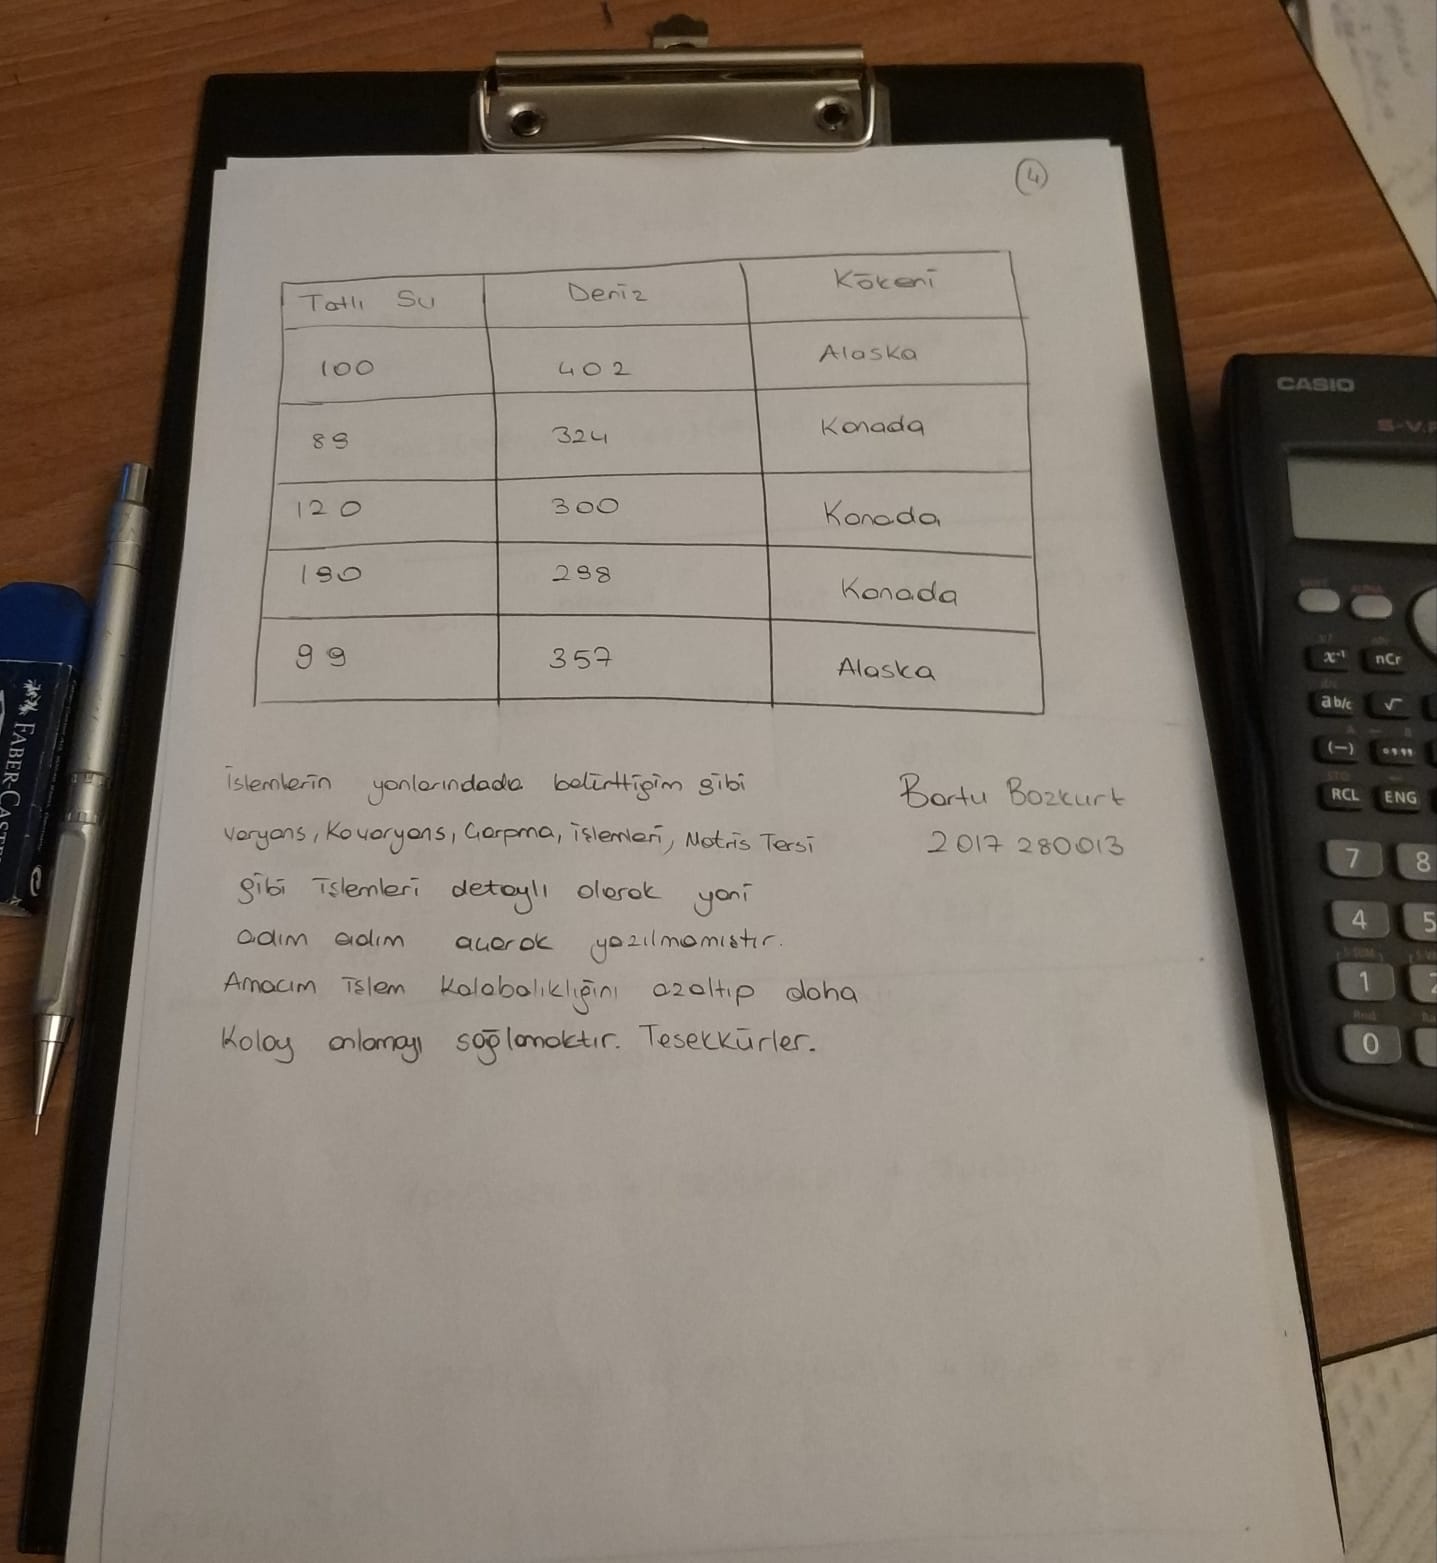 4
Tatlı Su Deniz Kökeni
100 402 Alaska
89 324 Kanada
120 300 Kanada
190 298 Kanada
99 357 Alaska
işlemlerin yanlarındada belirttiğim gibi
Varyans, Kovaryans, Çarpma, işlemleri, Matris Tersi
gibi işlemleri detaylı olarak yani
adım adım açarak yazılmamıştır.
Amacım işlem Kalabalıklığını azaltıp daha
Kolay anlamayı sağlamaktır. Teşekkürler.
Bartu Bozkurt
2017280013
CASIO
S-V.P
x⁻¹ nCr
ab/c √
(−)
RCL ENG
7 8
4 5
1 2
0
FABER-CAST